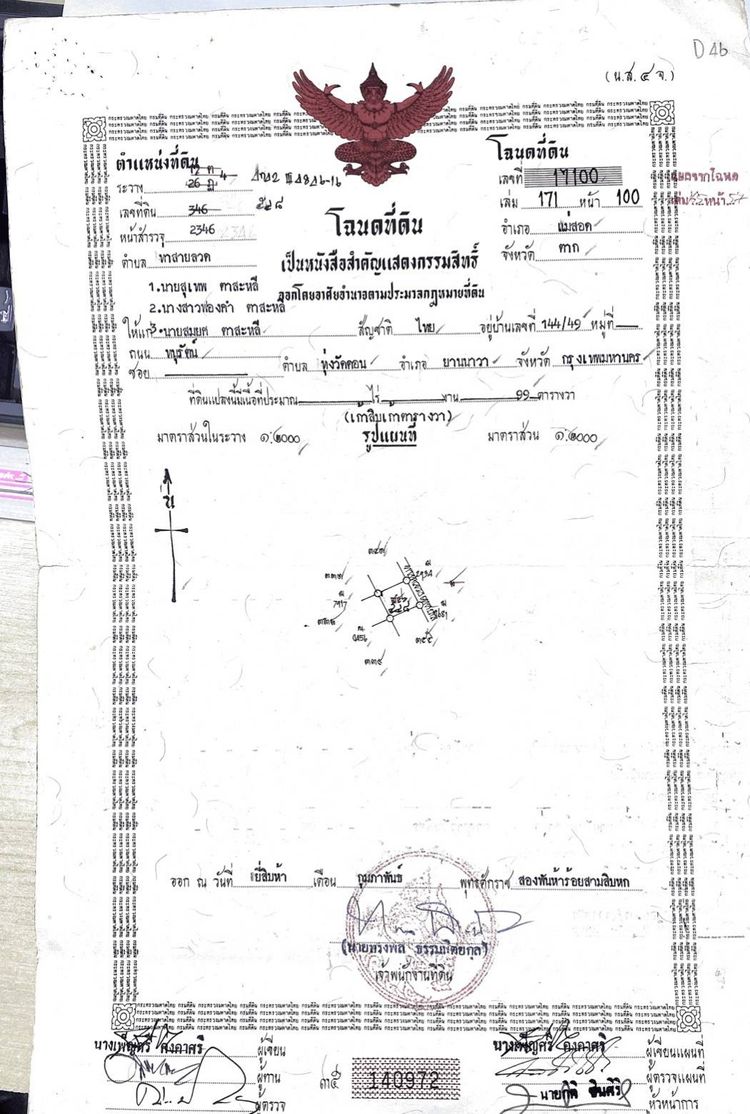 D46
(น.ส.๔ จ.)
ตำแหน่งที่ดิน
ระวาง
เลขที่ดิน 346
หน้าสำรวจ 2346
ตำบล ท่าสายลวด
โฉนดที่ดิน
เลขที่ 17100
เล่ม 171 หน้า 100
อำเภอ แม่สอด
จังหวัด ตาก
โฉนดที่ดิน
เป็นหนังสือสำคัญแสดงกรรมสิทธิ์
ออกโดยอาศัยอำนาจตามประมวลกฎหมายที่ดิน
1.นายสุเทพ ตาสะหลี
2.นางสาวฟองคำ ตาสะหลี
ให้แก่ 3.นายสมยศ ตาสะหลี สัญชาติ ไทย อยู่บ้านเลขที่ 144/49 หมู่ที่
ถนน
ซอย ตำบล ทุ่งวัดดอน อำเภอ ยานนาวา จังหวัด กรุงเทพมหานคร
ที่ดินแปลงนี้มีเนื้อที่ประมาณ ไร่ งาน 99 ตารางวา
(เก้าสิบเก้าตารางวา)
มาตราส่วนในระวาง ๑:๒๐๐๐ รูปแผนที่ มาตราส่วน ๑:๒๐๐๐
น
๓๓๙
ออก ณ วันที่ ยี่สิบห้า เดือน กุมภาพันธ์ พุทธศักราช สองพันห้าร้อยสามสิบหก
เจ้าพนักงานที่ดิน
นางเพ็ญศรี คงคาศรี ผู้เขียน
ผู้ทาน
ผู้ตรวจ
140972
นางเพ็ญศรี คงคาศรี ผู้เขียนแผนที่
ผู้ตรวจแผนที่
หัวหน้าการ